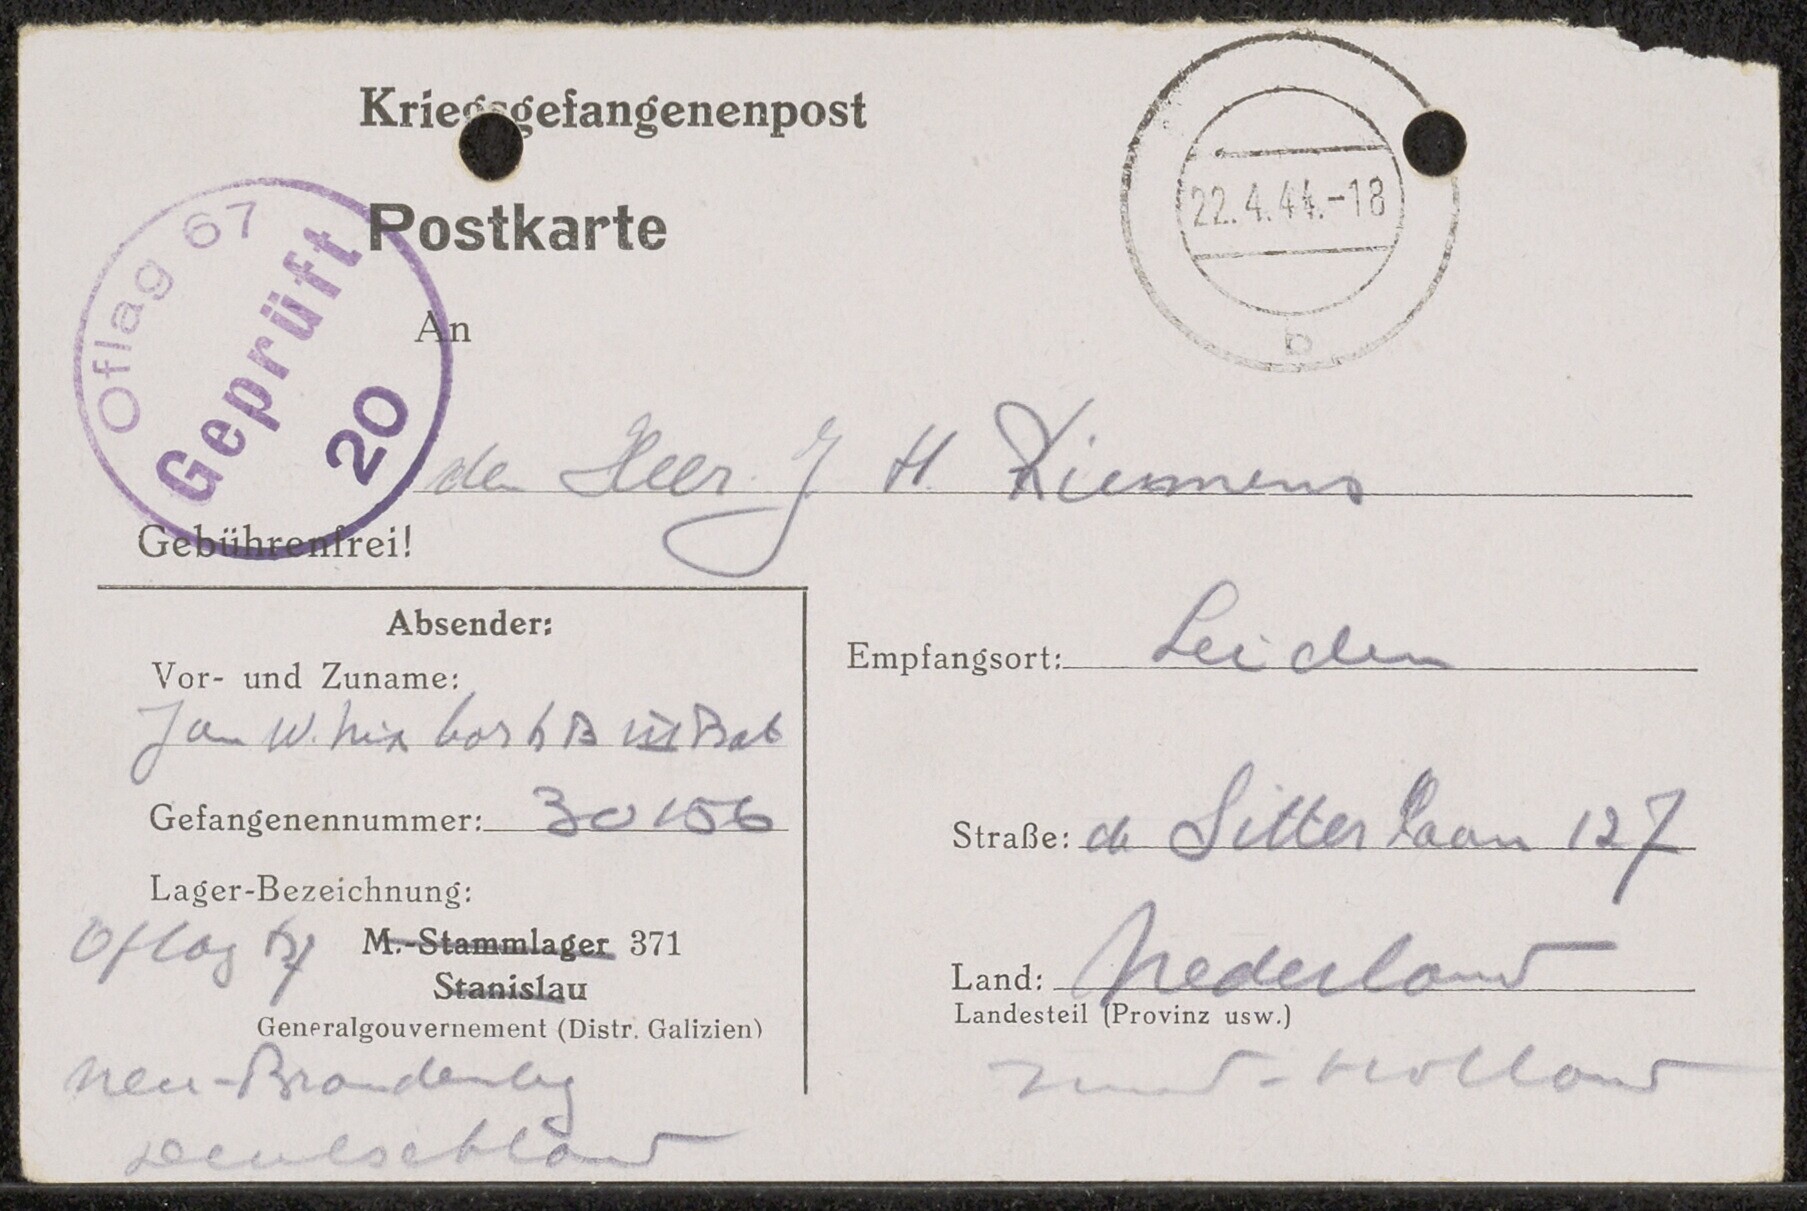 Kriegsgefangenenpost
22.4.44.-18
b
Postkarte
Oflag 67
Geprüft
20
An
den Heer J H
Gebührenfrei!
Absender:
Vor- und Zuname:
Jan W. Nix III Bat
Gefangenennummer: 30156
Lager-Bezeichnung:
Oflag 67 M.-Stammlager 371
Stanislau
Generalgouvernement (Distr. Galizien)
Neu-Brandenbg
Deutschland
Empfangsort: Leiden
Straße: de Sitter laan 127
Land: Nederland
Landesteil (Provinz usw.)
Zuid-Holland